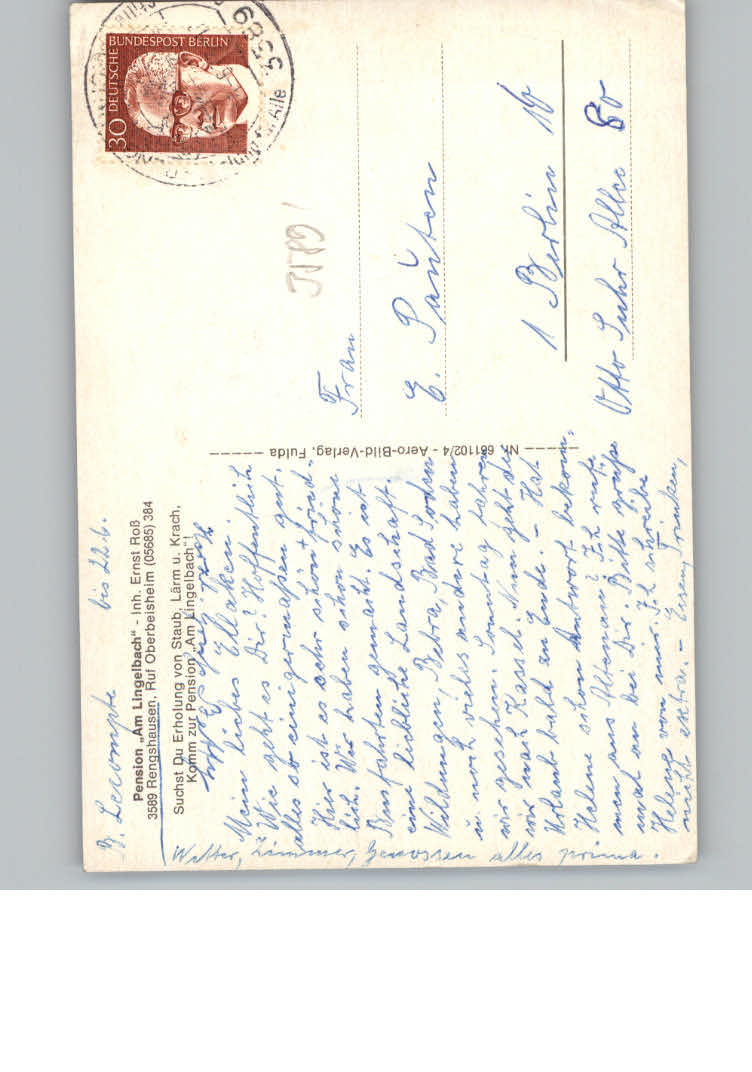 B. Lecompte bis 22.6.
Pension „Am Lingelbach" - Inh. Ernst Roß
3589 Rengshausen, Ruf Oberbeisheim (05685) 384
Suchst Du Erholung von Staub, Lärm u. Krach,
Komm zur Pension „Am Lingelbach"!
Mein liebes Ellaken.
Wie geht es Dir? Hoffentlich
alles so einigermaßen gut.
Hier ist es sehr schön + fried-
lich. Wir haben schon schöne
Busfahrten gemacht. Es ist
eine liebliche Landschaft.
Wildungen, Bebra, Bad Soden
u. noch vieles andere haben
wir gesehen. Sonntag fahren
wir nach Kassel. Nun geht der
Urlaub bald zu Ende. - Hat
Helene schon Antwort bekom-
men aus Altenau? Ich rufe
mal an bei Dir. Bitte grüße
Helene von mir. Ich schreibe
nicht extra. - Essen, Trinken,
Wetter, Zimmer, Genossen alles prima.
Nr. 661102/4 - Aero-Bild-Verlag, Fulda
30 DEUTSCHE BUNDESPOST BERLIN
3589
J589
Frau
E. Paŭten
1 Berlin 10
Otto Suhr Allee 80